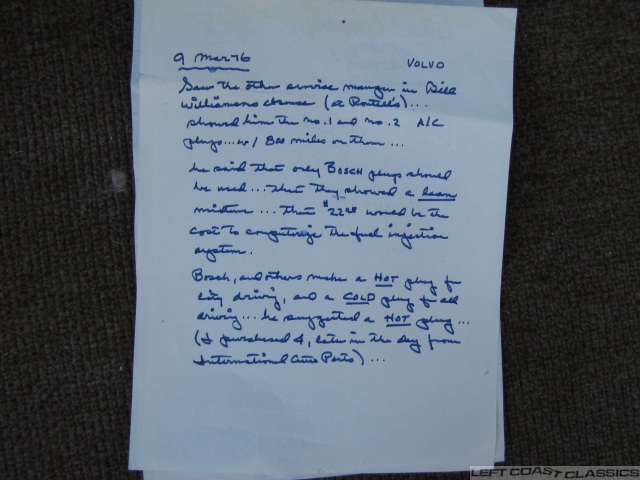 9 Mar 76 VOLVO
Saw the other service manger in Bill
Williamsons absence (at Pontell's)...
showed him the no. 1 and no. 2 A/C
plugs... w/ 800 miles on them...
he said that only BOSCH plugs should
be used... that they showed a lean
mixture... that $22.00 would be the
cost to computerize the fuel injection
system.
Bosch, and others make a HOT plug for
city driving, and a COLD plug for all
driving... he suggested a HOT plug...
(I purchased 4, late in the day from
International Auto Parts)...
LEFT COAST CLASSICS